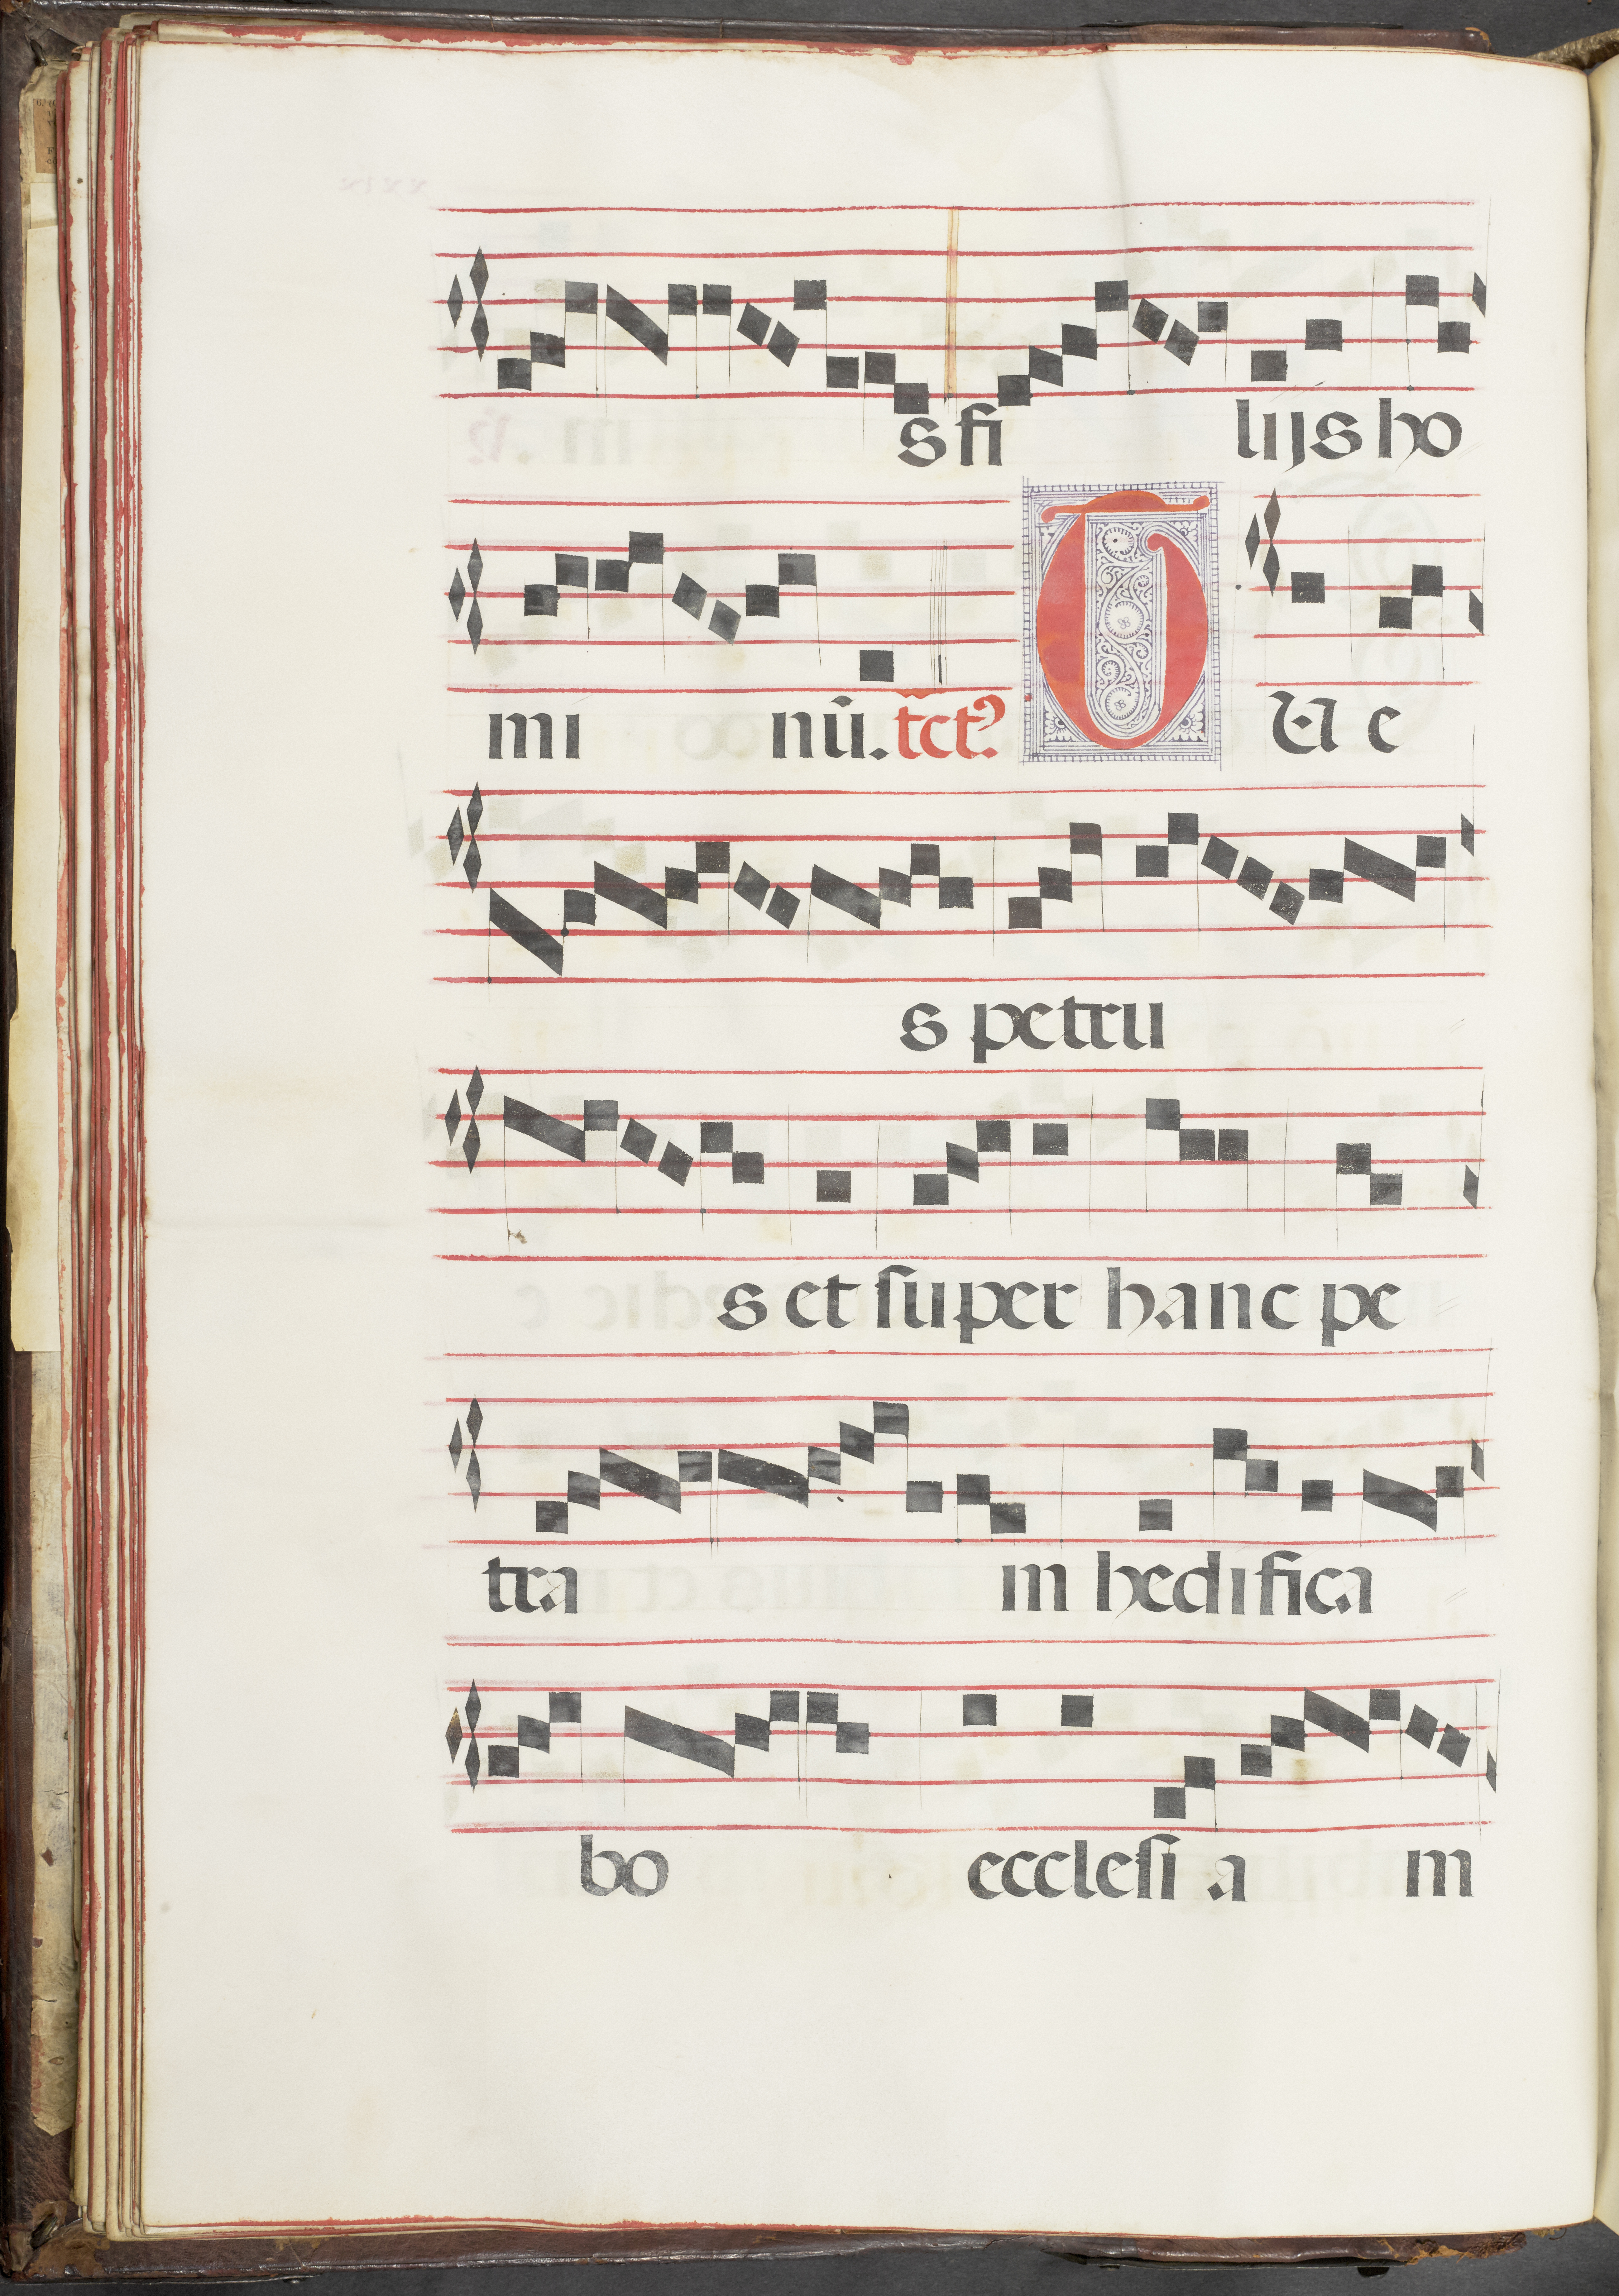 s fi lijs ho
mi nū. tct9. TU e
s petru
s et super hanc pe
tra m hedifica
bo ecclesi a m